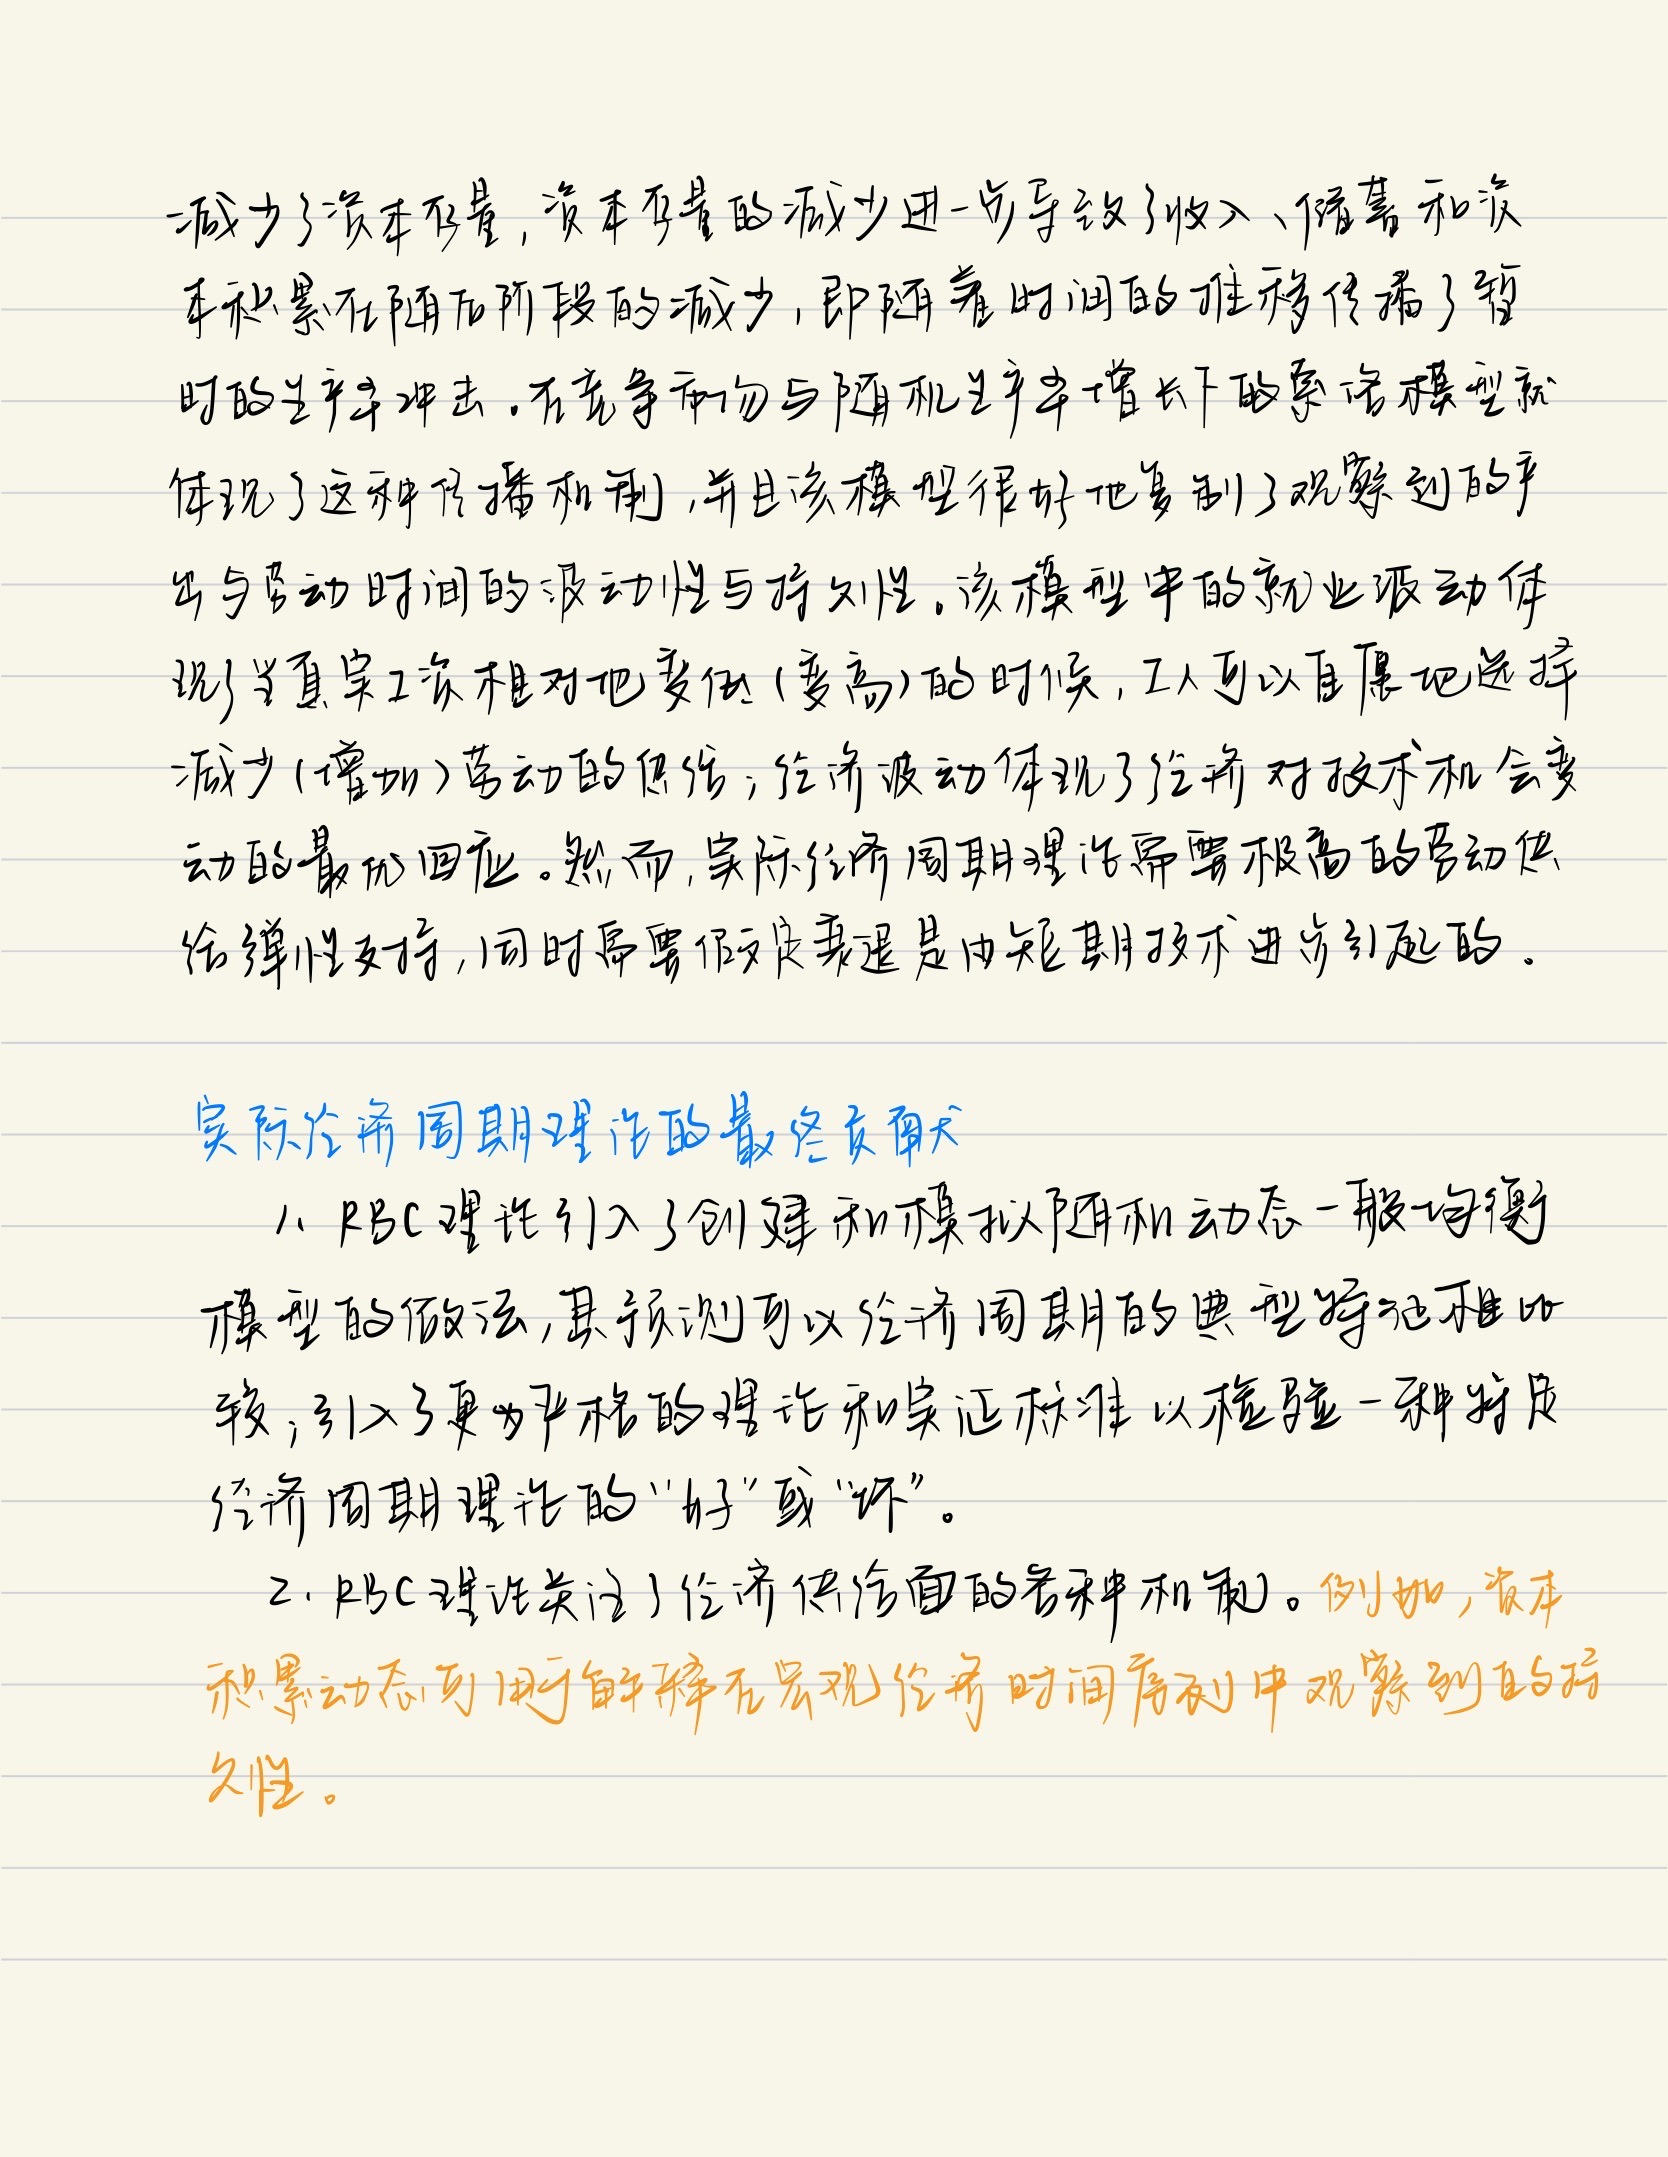 减少了资本存量,资本存量的减少进一步导致了收入、储蓄和资
本积累在随后阶段的减少,即随着时间的推移传播了暂
时的生产率冲击。在竞争市场与随机生产率增长下的索洛模型就
体现了这种传播机制,并且该模型很好地复制了观察到的产
出与劳动时间的波动性与持久性。该模型中的就业波动体
现了当真实工资相对地变低(变高)的时候,工人可以自愿地选择
减少(增加)劳动的供给;经济波动体现了经济对技术机会变
动的最优回应。然而,实际经济周期理论需要极高的劳动供
给弹性支持,同时需要假定衰退是由短期技术进步引起的。
实际经济周期理论的最终贡献
1. RBC理论引入了创建和模拟随机动态一般均衡
模型的做法,其预测可以经济周期的典型特征相比
较;引入了更为严格的理论和实证标准以检验一种特定
经济周期理论的“好”或“坏”。
2. RBC理论关注了经济供给面的各种机制。例如,资本
积累动态可用于解释在宏观经济时间序列中观察到的持
久性。